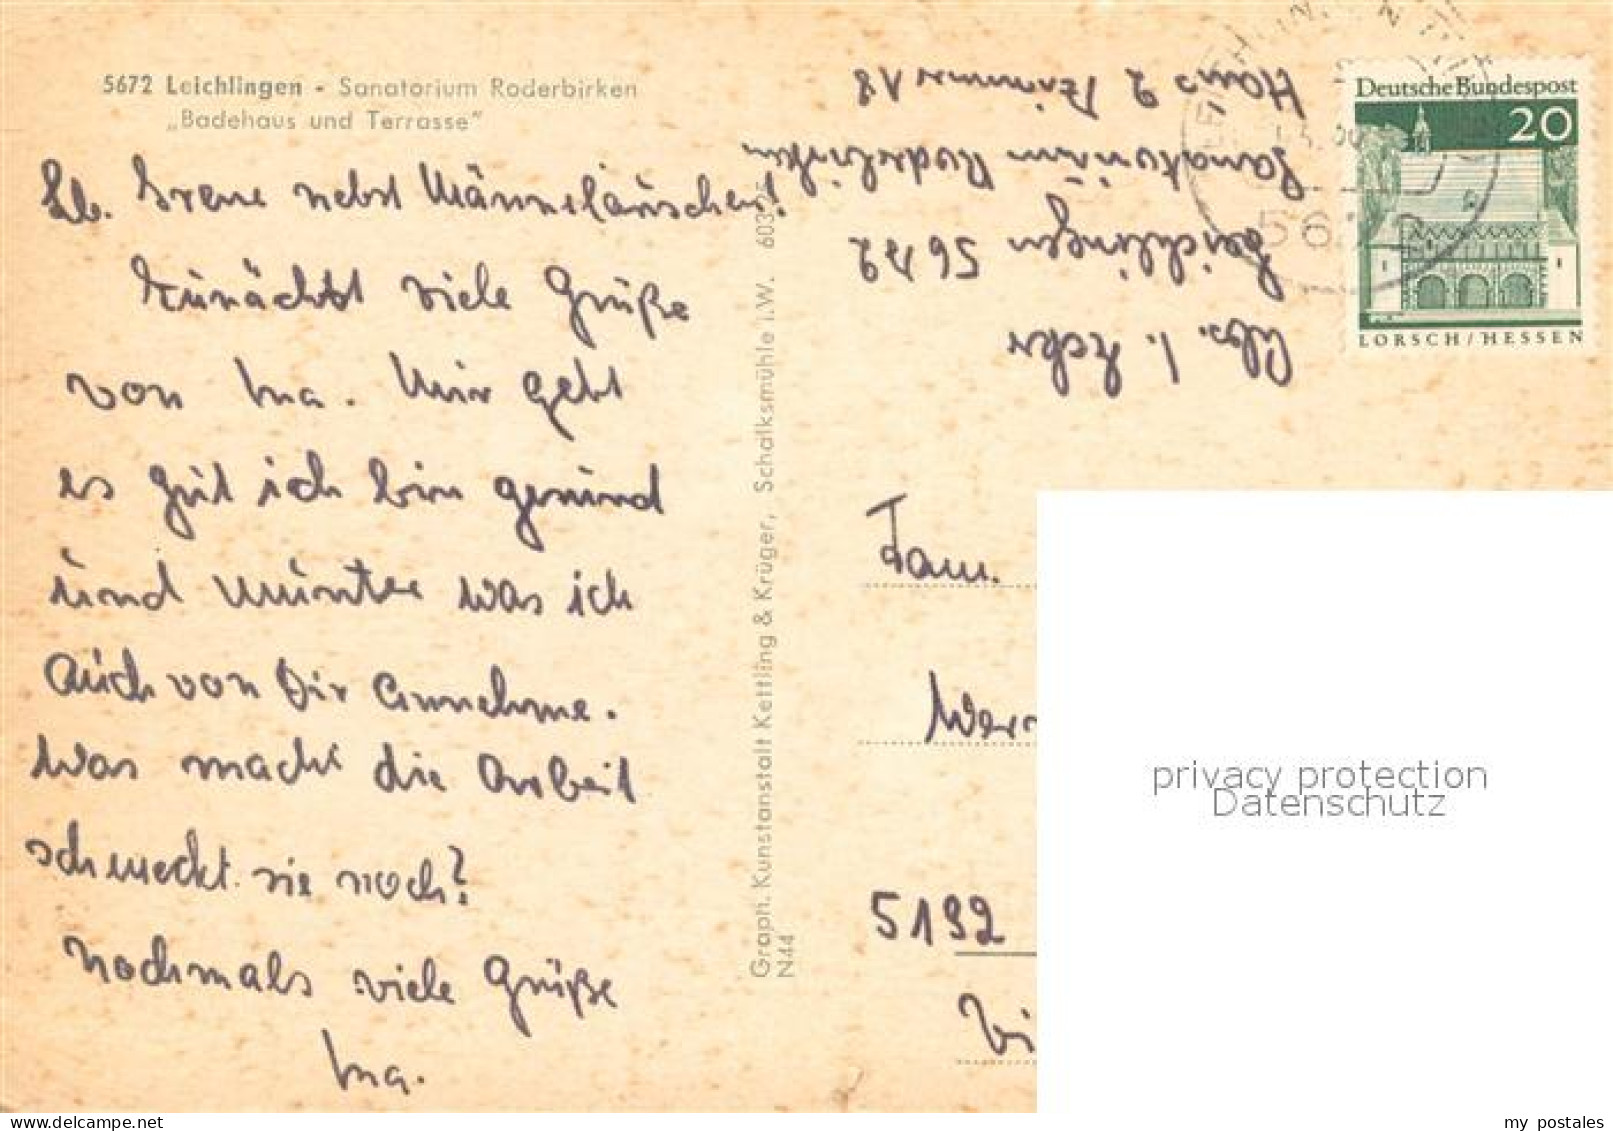 5672 Leichlingen - Sanatorium Roderbirken
„Badehaus und Terrasse"
Lb. Irene nebst Männeläuschen!
Zunächst viele Grüße
von Ma. Mir geht
es gut ich bin gesund
und munter was ich
auch von Dir annehme.
Was macht die Arbeit
schmeckt sie noch?
Nochmals viele Grüße
Ma.
Graph. Kunstanstalt Kettling & Krüger, Schalksmühle i.W.
N44
Abs. I.
Leichlingen 5672
Sanatorium Roderbirken
Haus 2 Zimmer 18
Deutsche Bundespost
20
LORSCH/HESSEN
Fam.
5192
privacy protection
Datenschutz
www.delcampe.net
my_postales